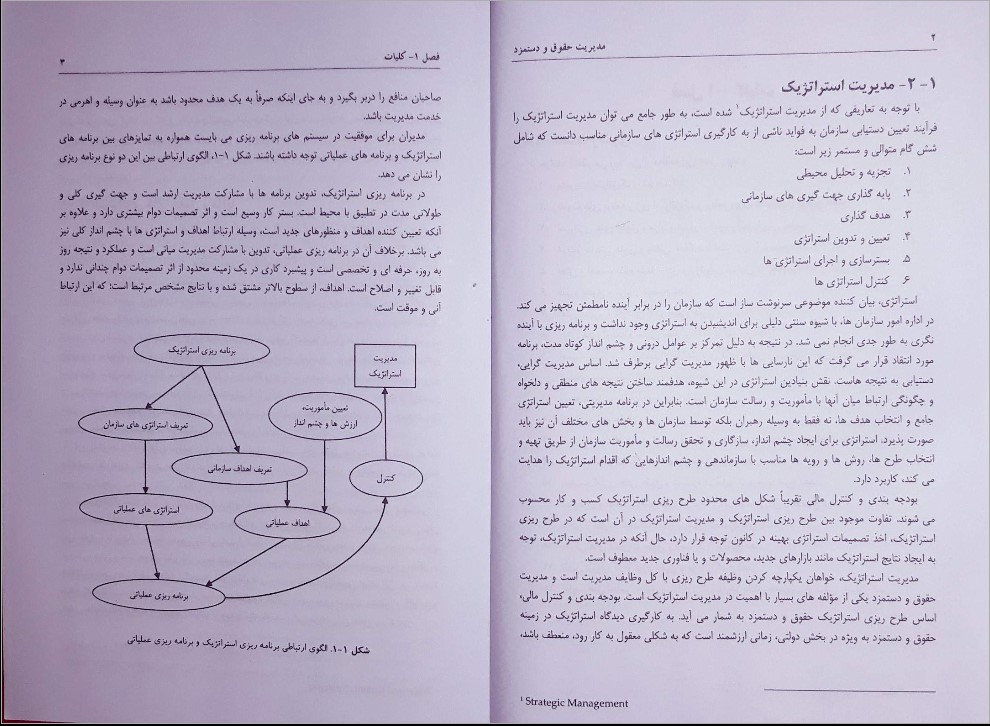 ۲
مدیریت حقوق و دستمزد
۱- ۲- مدیریت استراتژیک
با توجه به تعاریفی که از مدیریت استراتژیک¹ شده است، به طور جامع می توان مدیریت استراتژیک را
فرآیند تعیین دستیابی سازمان به فواید ناشی از به کارگیری استراتژی های سازمانی مناسب دانست که شامل
شش گام متوالی و مستمر زیر است:
۱. تجزیه و تحلیل محیطی
۲. پایه گذاری جهت گیری های سازمانی
۳. هدف گذاری
۴. تعیین و تدوین استراتژی
۵. بسترسازی و اجرای استراتژی ها
۶. کنترل استراتژی ها
استراتژی، بیان کننده موضوعی سرنوشت ساز است که سازمان را در برابر آینده نامطمئن تجهیز می کند.
در اداره امور سازمان ها، با شیوه سنتی دلیلی برای اندیشیدن به استراتژی وجود نداشت و برنامه ریزی با آینده
نگری به طور جدی انجام نمی شد. در نتیجه به دلیل تمرکز بر عوامل درونی و چشم انداز کوتاه مدت، برنامه
مورد انتقاد قرار می گرفت که این نارسایی ها با ظهور مدیریت گرایی برطرف شد. اساس مدیریت گرایی،
دستیابی به نتیجه هاست. نقش بنیادین استراتژی در این شیوه، هدفمند ساختن نتیجه های منطقی و دلخواه
و چگونگی ارتباط میان آنها با مأموریت و رسالت سازمان است. بنابراین در برنامه مدیریتی، تعیین استراتژی
جامع و انتخاب هدف ها، نه فقط به وسیله رهبران بلکه توسط سازمان ها و بخش های مختلف آن نیز باید
صورت پذیرد. استراتژی برای ایجاد چشم انداز، سازگاری و تحقق رسالت و مأموریت سازمان از طریق تهیه و
انتخاب طرح ها، روش ها و رویه ها مناسب با سازماندهی و چشم اندازهایی که اقدام استراتژیک را هدایت
می کند، کاربرد دارد.
بودجه بندی و کنترل مالی تقریباً شکل های محدود طرح ریزی استراتژیک کسب و کار محسوب
می شوند. تفاوت موجود بین طرح ریزی استراتژیک و مدیریت استراتژیک در آن است که در طرح ریزی
استراتژیک، اخذ تصمیمات استراتژی بهینه در کانون توجه قرار دارد، حال آنکه در مدیریت استراتژیک، توجه
به ایجاد نتایج استراتژیک مانند بازارهای جدید، محصولات و یا فناوری جدید معطوف است.
مدیریت استراتژیک، خواهان یکپارچه کردن وظیفه طرح ریزی با کل وظایف مدیریت است و مدیریت
حقوق و دستمزد یکی از مؤلفه های بسیار با اهمیت در مدیریت استراتژیک است. بودجه بندی و کنترل مالی،
اساس طرح ریزی استراتژیک حقوق و دستمزد به شمار می آید. به کارگیری دیدگاه استراتژیک در زمینه
حقوق و دستمزد به ویژه در بخش دولتی، زمانی ارزشمند است که به شکلی معقول به کار رود، منعطف باشد،
¹ Strategic Management
فصل ۱- کلیات
۳
صاحبان منافع را دربر بگیرد و به جای اینکه صرفاً به یک هدف محدود باشد به عنوان وسیله و اهرمی در
خدمت مدیریت باشد.
مدیران برای موفقیت در سیستم های برنامه ریزی می بایست همواره به تمایزهای بین برنامه های
استراتژیک و برنامه های عملیاتی توجه داشته باشند. شکل ۱-۱، الگوی ارتباطی بین این دو نوع برنامه ریزی
را نشان می دهد.
در برنامه ریزی استراتژیک، تدوین برنامه ها با مشارکت مدیریت ارشد است و جهت گیری کلی و
طولانی مدت در تطبیق با محیط است. بستر کار وسیع است و اثر تصمیمات دوام بیشتری دارد و علاوه بر
آنکه تعیین کننده اهداف و منظورهای جدید است، وسیله ارتباط اهداف و استراتژی ها با چشم انداز کلی نیز
می باشد. برخلاف آن در برنامه ریزی عملیاتی، تدوین با مشارکت مدیریت میانی است و عملکرد و نتیجه روز
به روز، حرفه ای و تخصصی است و پیشبرد کاری در یک زمینه محدود از اثر تصمیمات دوام چندانی ندارد و
قابل تغییر و اصلاح است. اهداف، از سطوح بالاتر مشتق شده و با نتایج مشخص مرتبط است؛ که این ارتباط
آنی و موقت است.
برنامه ریزی استراتژیک
مدیریت
استراتژیک
تعیین مأموریت،
ارزش ها و چشم انداز
تعریف استراتژی های سازمان
تعریف اهداف سازمانی
کنترل
استراتژی های عملیاتی
اهداف عملیاتی
برنامه ریزی عملیاتی
شکل ۱-۱. الگوی ارتباطی برنامه ریزی استراتژیک و برنامه ریزی عملیاتی